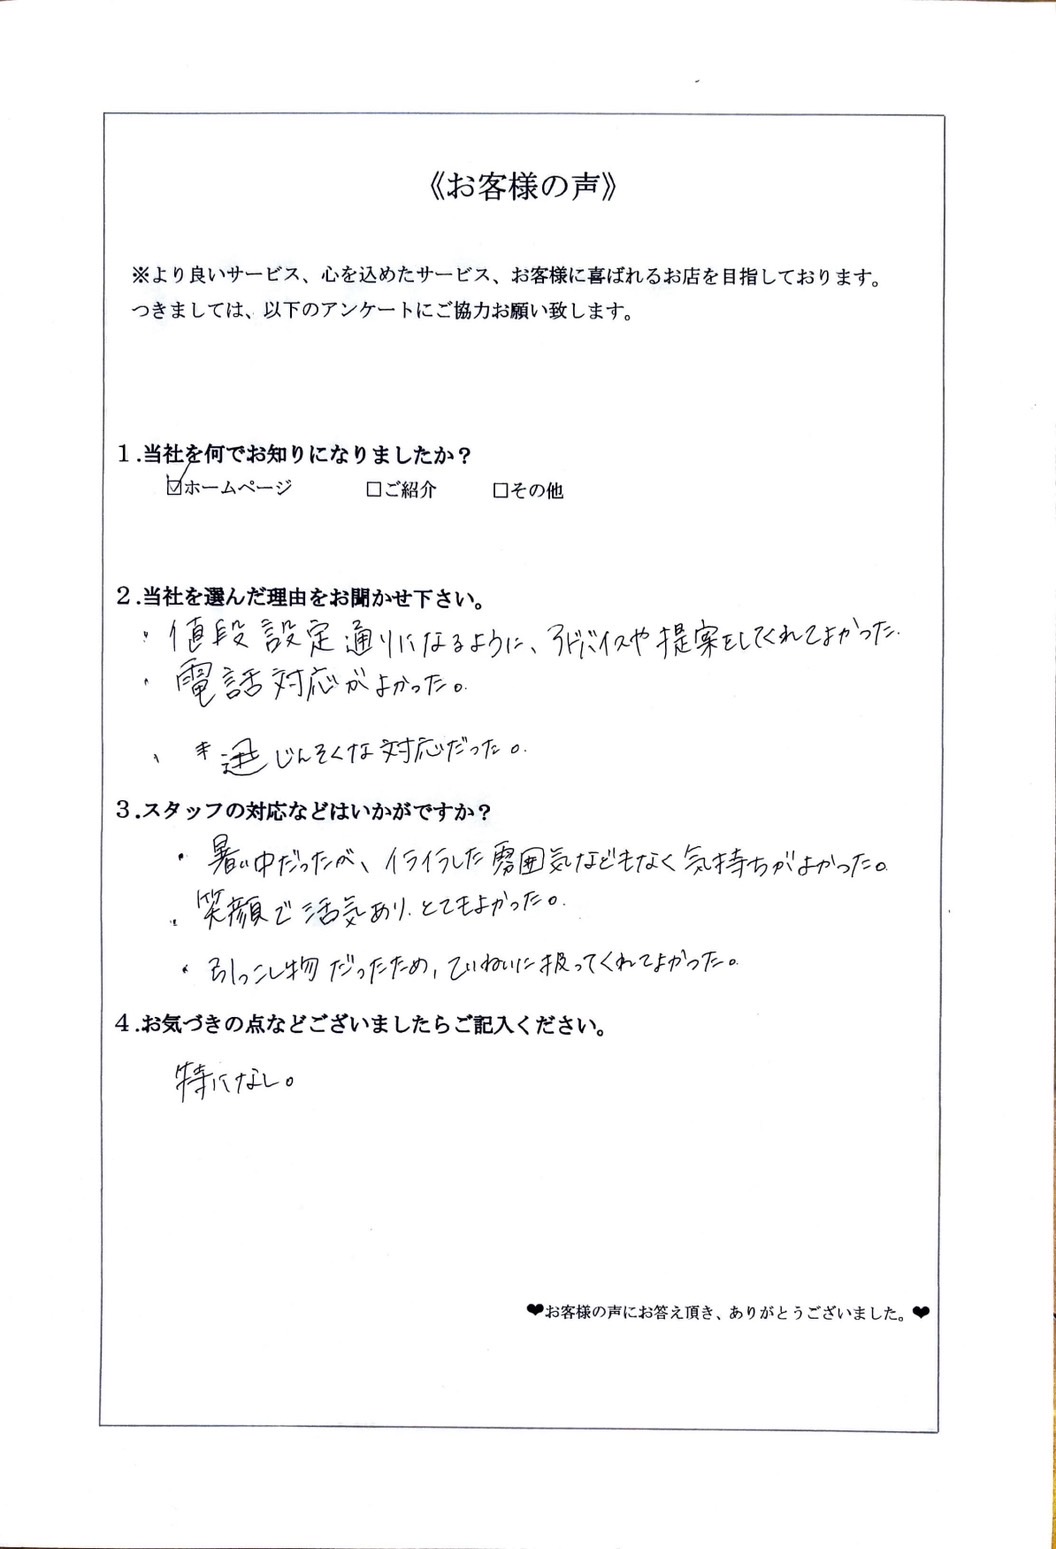 《お客様の声》
※より良いサービス、心を込めたサービス、お客様に喜ばれるお店を目指しております。
つきましては、以下のアンケートにご協力お願い致します。
1.当社を何でお知りになりましたか？
☑ホームページ　□ご紹介　□その他
2.当社を選んだ理由をお聞かせ下さい。
・値段設定通りになるように、アドバイスや提案をしてくれてよかった.
・電話対応がよかった。
・じんそくな対応だった。
3.スタッフの対応などはいかがですか？
・暑い中だったが、イライラした雰囲気などもなく気持ちがよかった。
・笑顔で活気あり、とてもよかった。
・引っこし物だったため、ていねいに扱ってくれてよかった。
4.お気づきの点などございましたらご記入ください。
特になし。
❤お客様の声にお答え頂き、ありがとうございました。❤